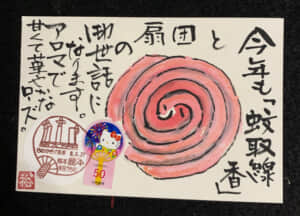 今年も「蚊取線
香」
と
扇団
の
御世話に
なります。
アロマで
甘くて華やかな
ローズ。
50